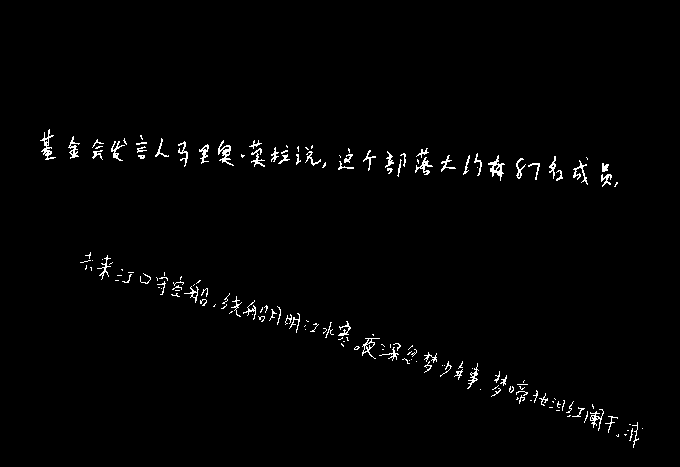 基金会发言人马里奥·莫拉说,这个部落大约有87名成员,
去来江口守空船,绕船月明江水寒。夜深忽梦少年事,梦啼妆泪红阑干。我